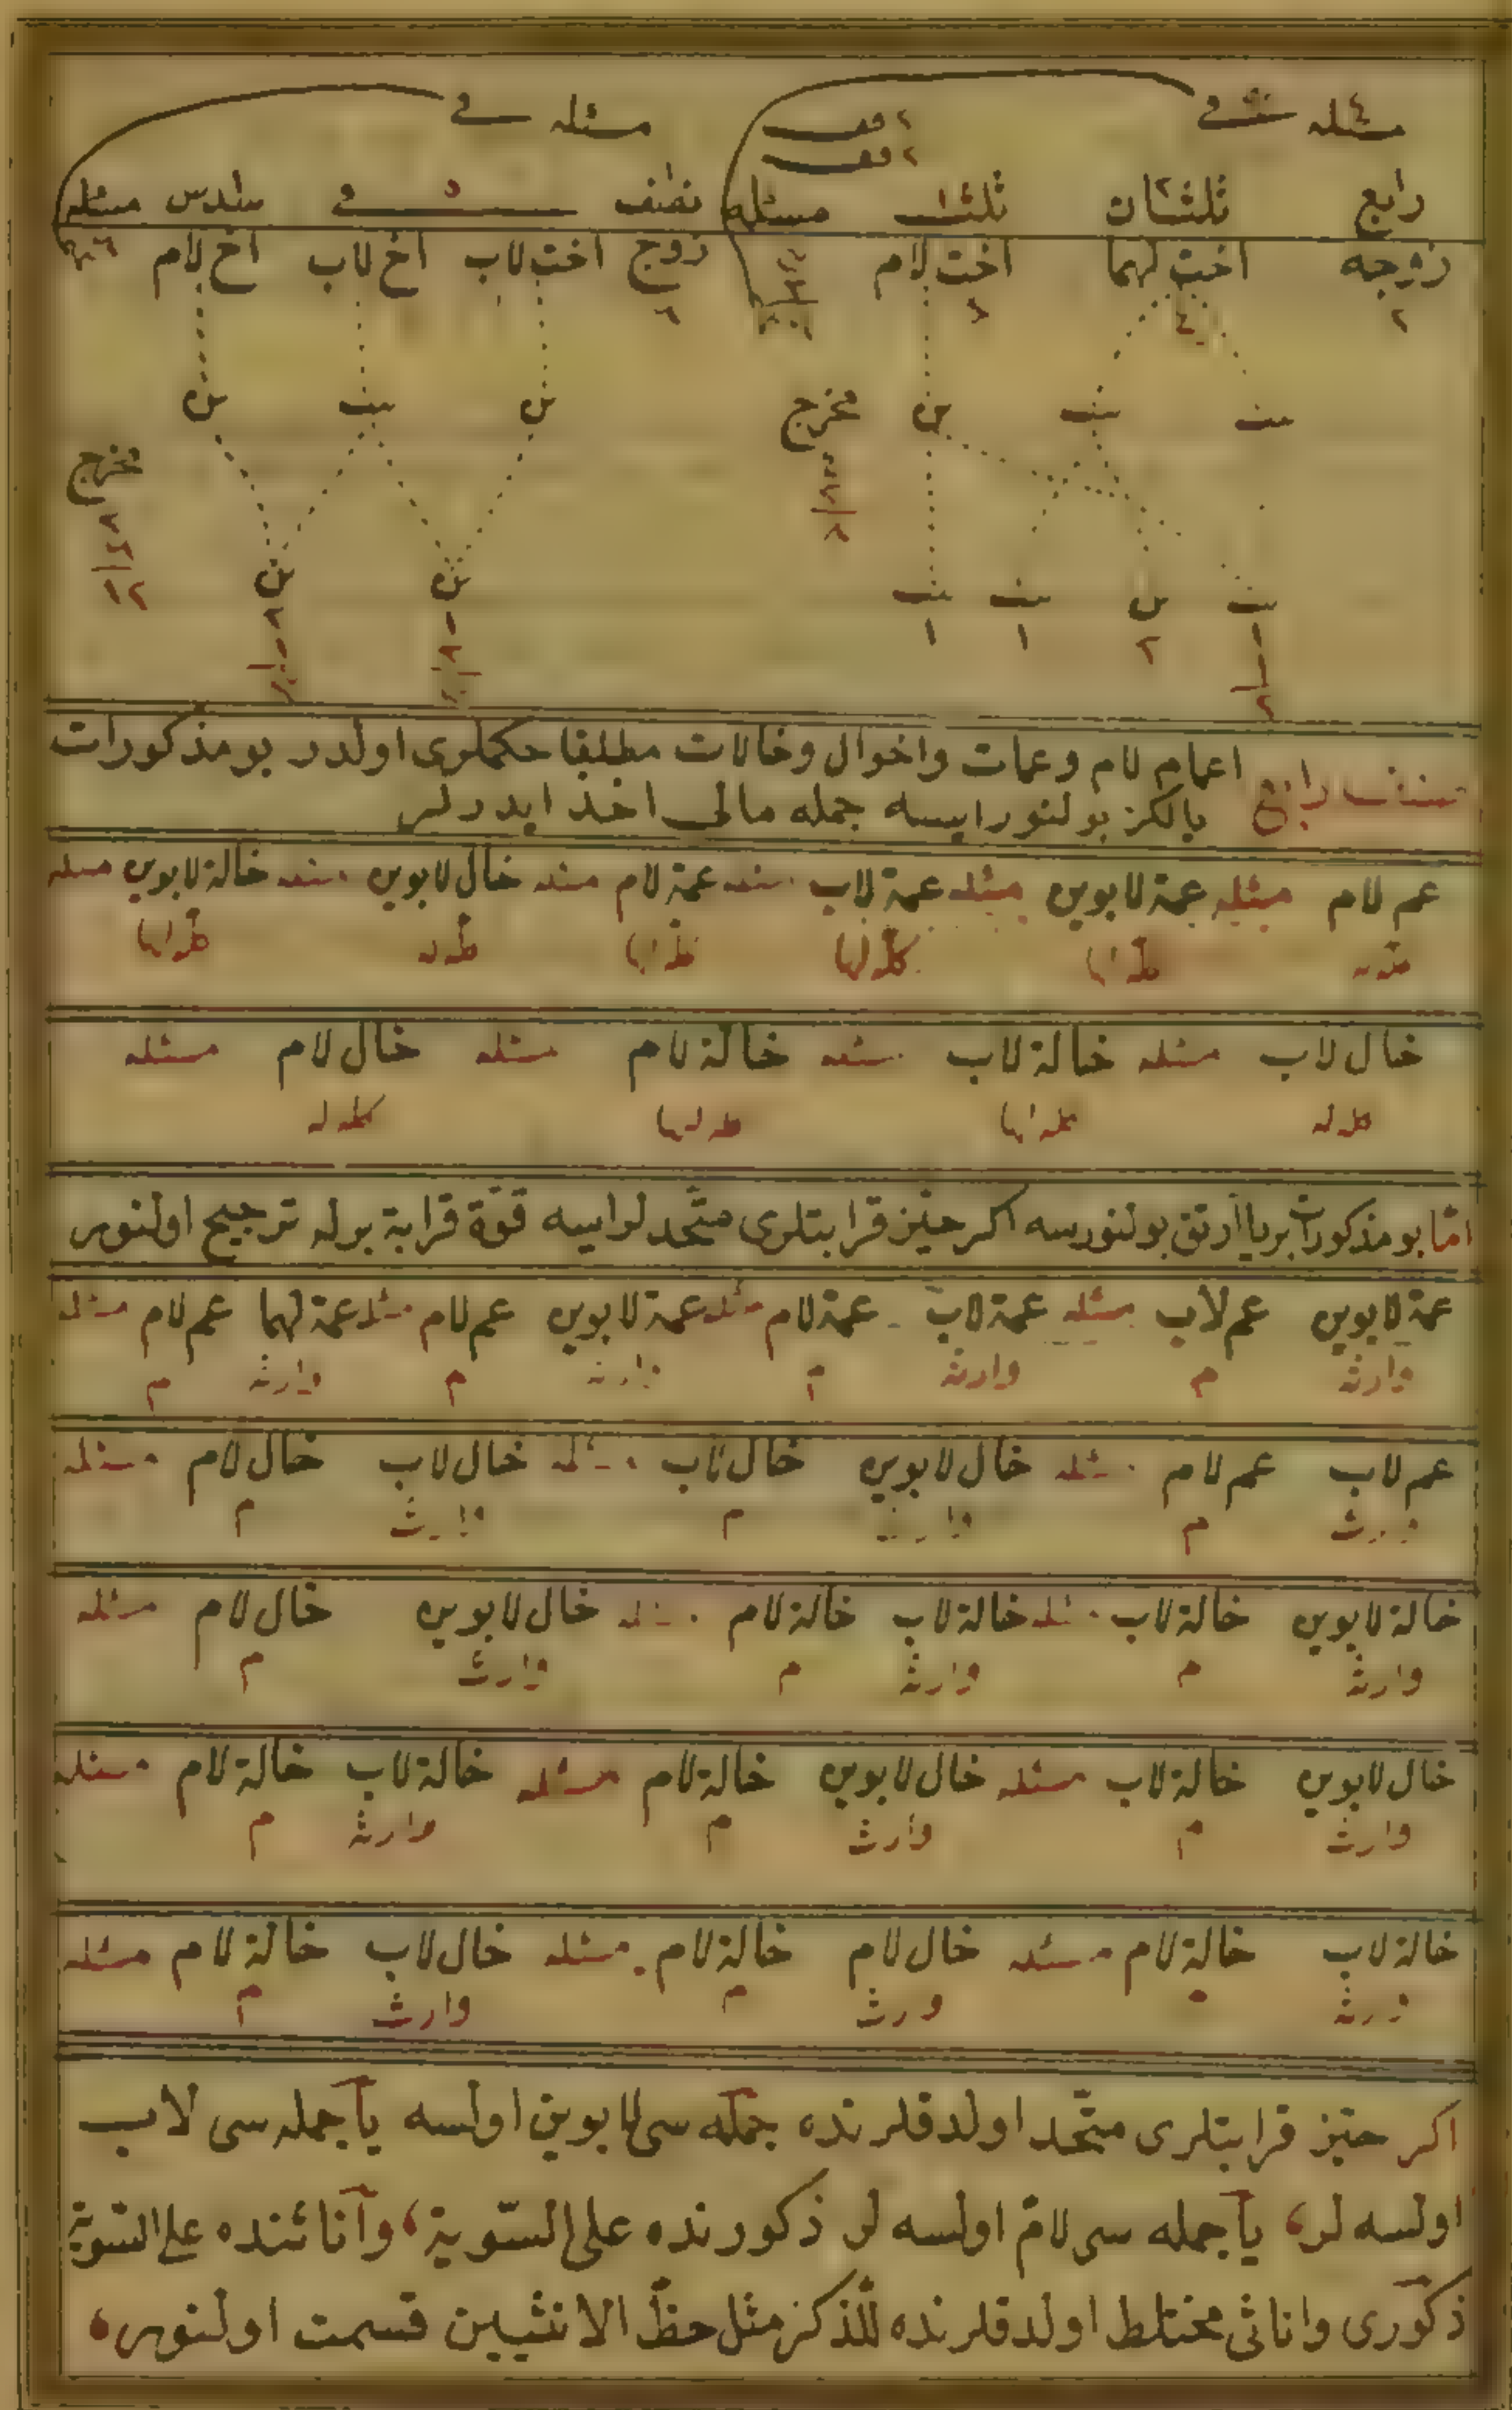 مسئله فے مسئله فے
رابع ثلثان ثلث مسئله نصف فے سدس مسئله
زوجه اخت لهما اخت لام زوج اخت لاب اخ لاب اخ لام
٢ ٤ ٦
بنت بنت بن مخرج بن بنت بن
مخرج
بنت بن بنت بنت بن بن
١ ٢ ١ ١
صنف رابع اعمام لام وعمات واخوال وخالات مطلقا حكملرى اولدر بو مذكورات
يالكز بولنور ايسه جمله مالى اخذ ايدرلر
عم لام مسئله عمة لابوين مسئله عمة لاب مسئله عمة لام مسئله خال لابوين مسئله خالة لابوين مسئله
كله له كله لها كله لها كله لها كله له كله لها
خال لاب مسئله خالة لاب مسئله خالة لام مسئله خال لام مسئله
كله له كله لها كله لها كله له
امّا بو مذكوراتْ بر يا ارتق بولنورسه اكر حيّز قرابتلرى متّحدلر ايسه قوّة قرابة بوله ترجيح اولنور
عمة لابوين عم لاب مسئله عمة لاب عمة لام مسئله عمة لابوين عم لام مسئله عمة لهما عم لام مسئله
وارثه م وارثه م وارثه م وارثه م
عم لاب عم لام مسئله خال لابوين خال لاب مسئله خال لاب خال لام مسئله
وارث م وارث م وارث م
خالة لابوين خالة لاب مسئله خالة لاب خالة لام مسئله خال لابوين خال لام مسئله
وارثه م وارثه م وارث م
خال لابوين خالة لاب مسئله خال لابوين خالة لام مسئله خالة لاب خالة لام مسئله
وارث م وارث م وارثه م
خالة لاب خالة لام مسئله خال لام خالة لام مسئله خال لاب خالة لام مسئله
ورثه م ورث م وارث م
اكر حيّز قرابتلرى متّحد اولدقلرنده جمله سى لابوين اولسه يا جمله سى لاب
اولسه لر، يا جمله سى لام اولسه لر ذكورنده على السّوية، واناثنده على السّوية
ذكورى واناثى مختلط اولدقلرنده للّذكر مثل حظّ الانثيين قسمت اولنور،